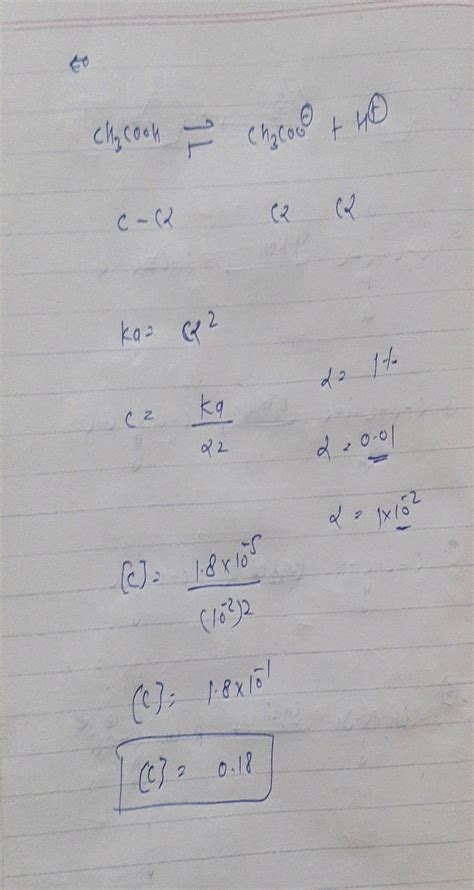 CH3COOH ⇌ CH3COO⊖ + H⊕
C - Cα Cα Cα
ka = Cα²
α = 1%
C = ka / α2
α = 0.01
α = 1×10⁻²
[C] = 1.8×10⁻⁵ / (10⁻²)2
[C] = 1.8×10⁻¹
[C] = 0.18